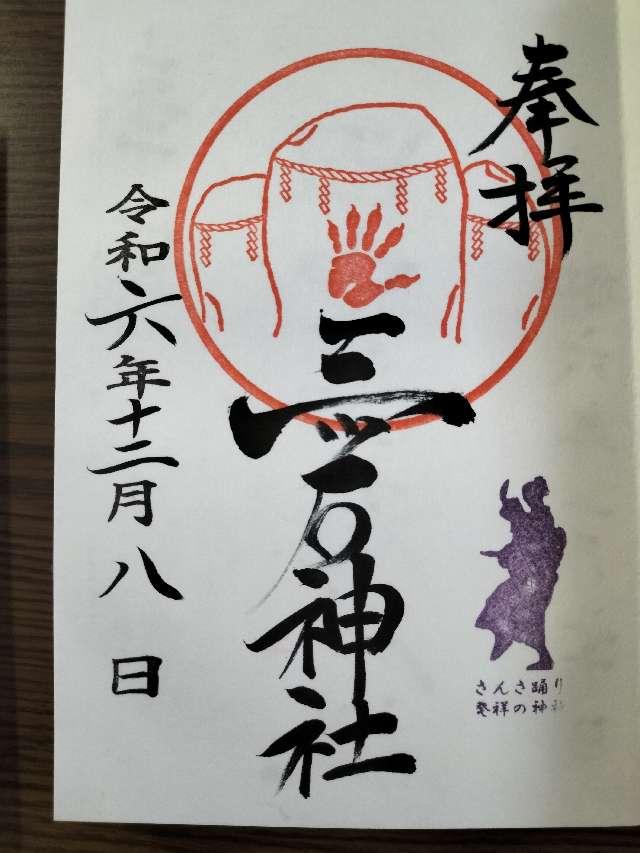 奉拝
三ツ石神社
さんさ踊り
発祥の神社
令和六年十二月八日